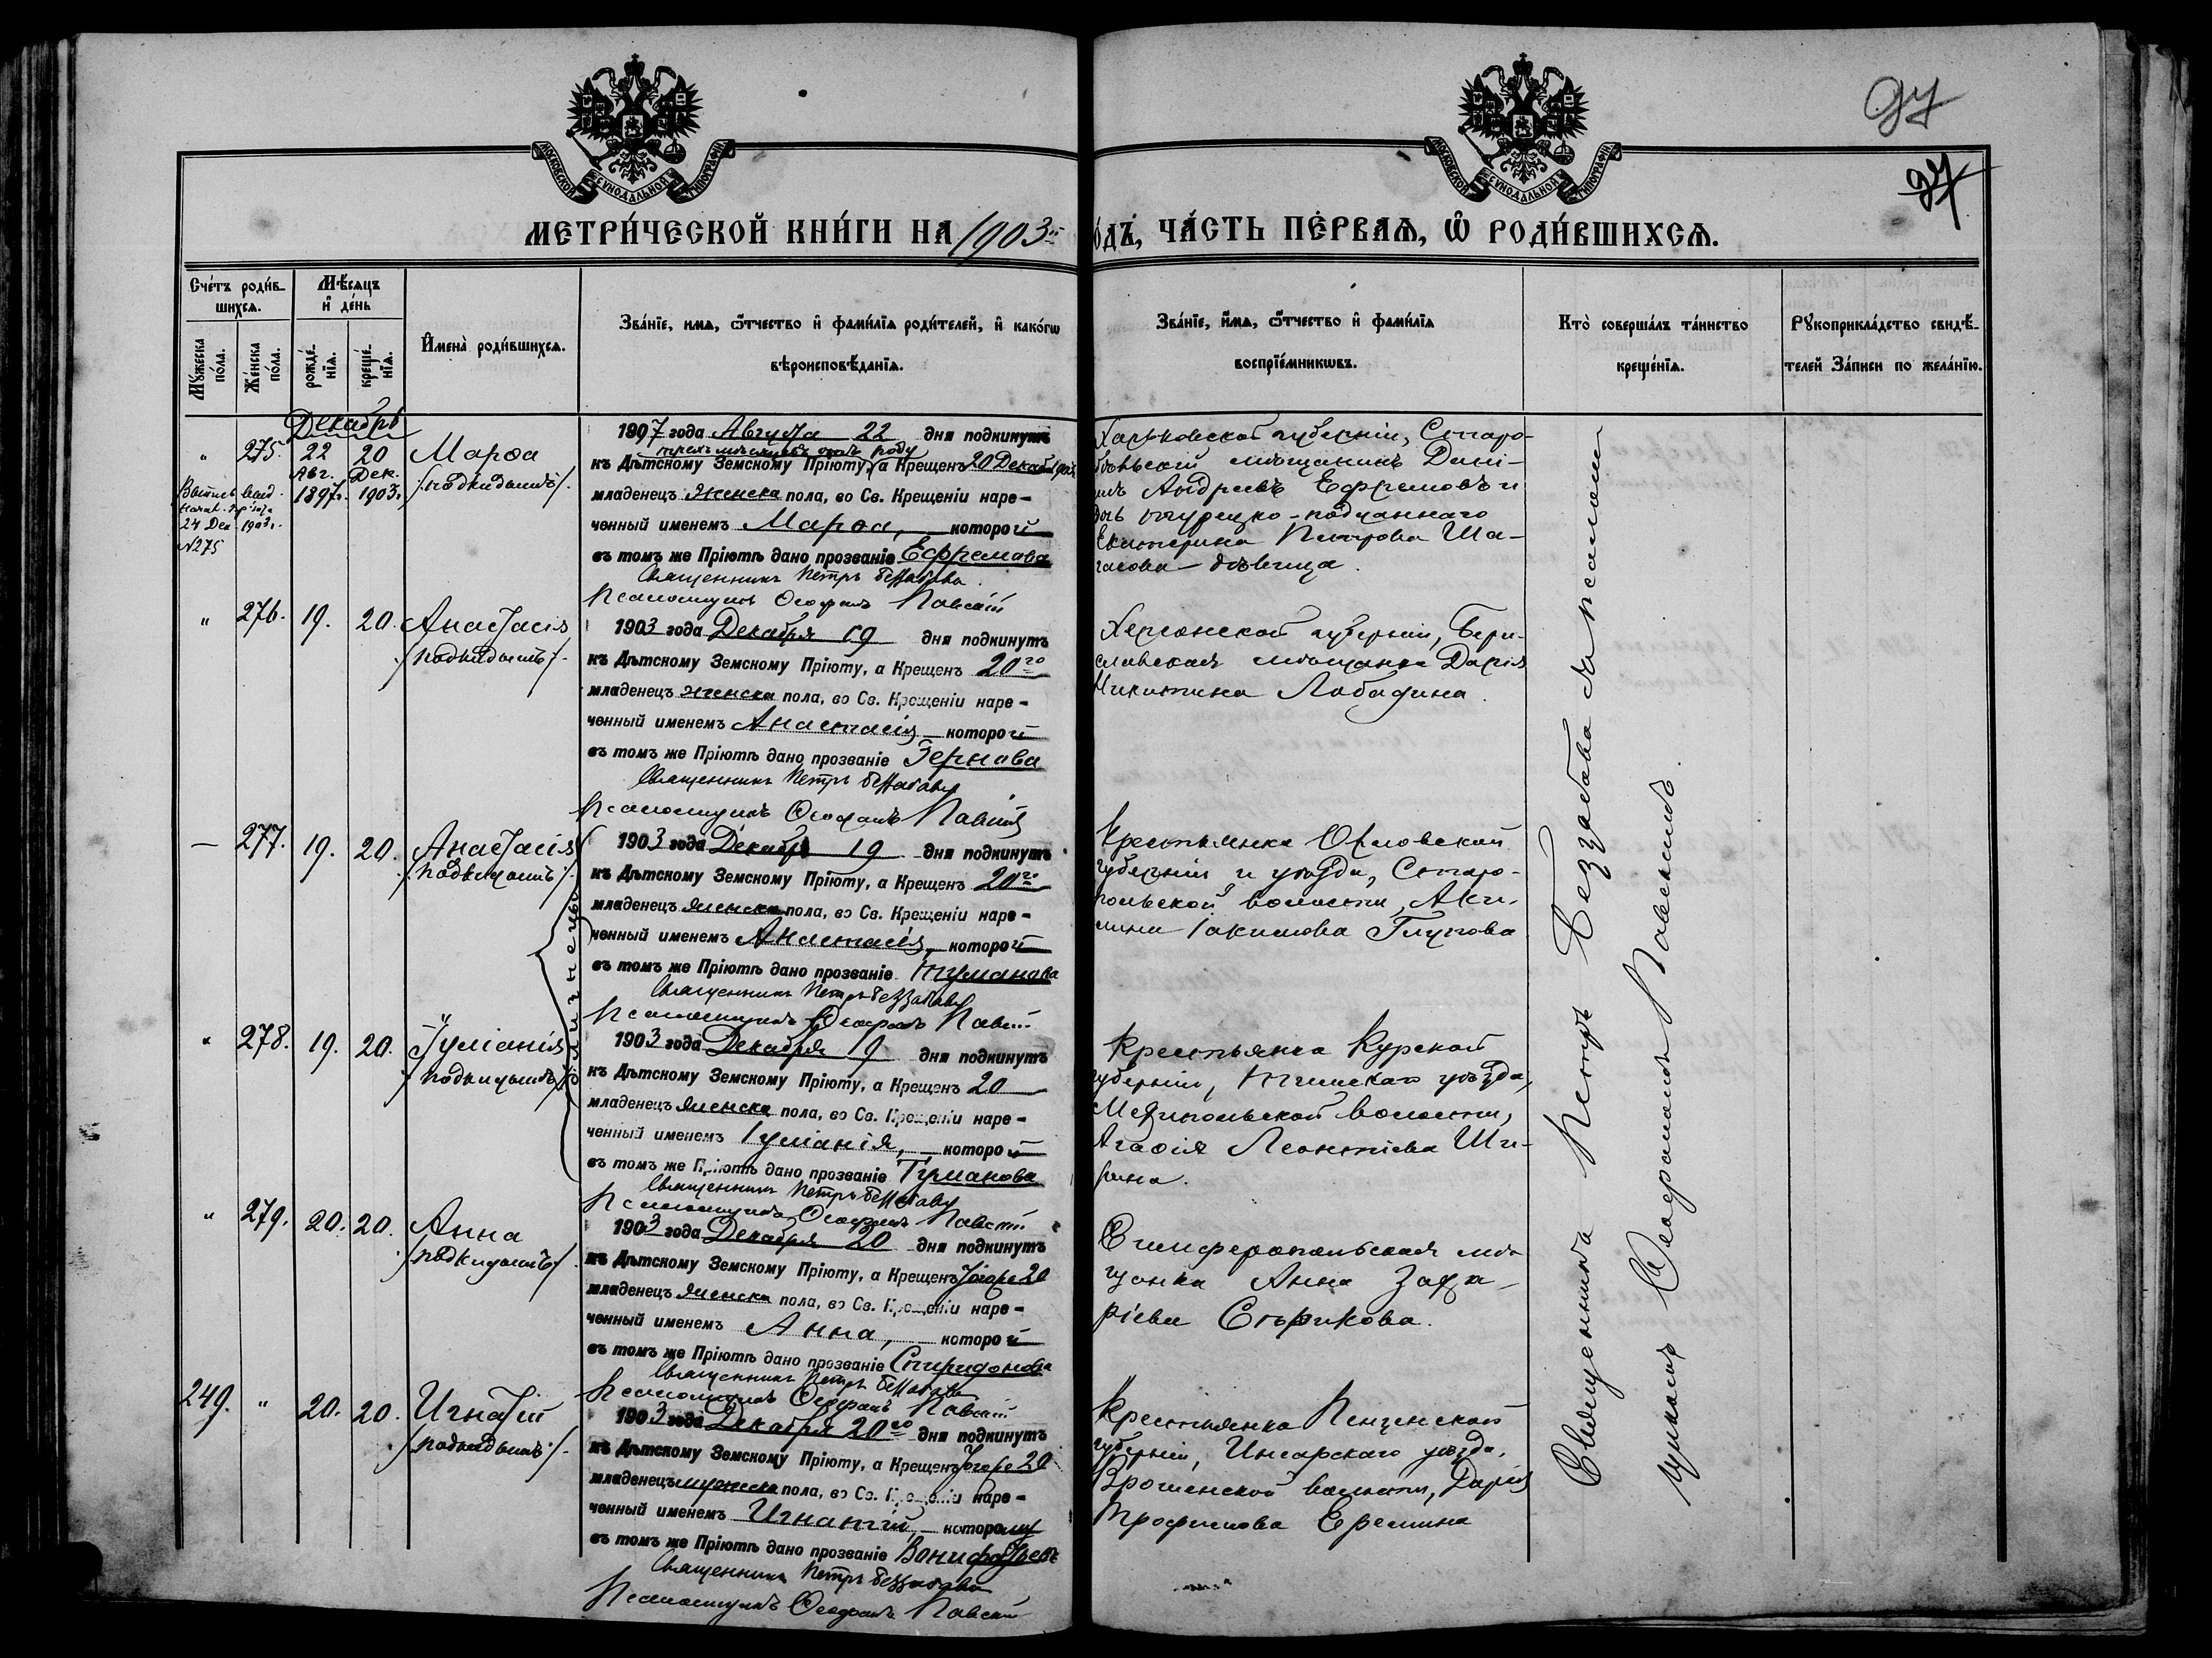 97
97
МОСКОВСКОЙ СѴНОДАЛЬНОЙ ТИПОГРАФІИ
МОСКОВСКОЙ СѴНОДАЛЬНОЙ ТИПОГРАФІИ
МЕТРИ́ЧЕСКОЙ КНИ́ГИ НА 1903й
ОДЪ, ЧА́СТЬ ПЕ́РВАѦ, Ѡ РОДИ́ВШИХСѦ.
Сче́тъ роди́в-
шихсѧ.
Мꙋ́жеска по́ла.
Же́нска по́ла.
Мѣ́сѧцъ и де́нь
рожде́нїѧ.
креще́нїѧ.
И҆мена̀ роди́вшихсѧ.
Зва́нїе, и҆мѧ, ѻ҆́тчество и҆ фами́лїѧ роди́телей, и҆ како́гѡ
вѣроисповѣ́данїѧ.
Зва́нїе, и҆́мѧ, ѻ҆́тчество и҆ фами́лїѧ
воспрїе́мникѡвъ.
Кто̀ соверша́лъ та́инство
креще́нїѧ.
Рꙋкоприкла́дство свидѣ́-
телей За́писи по жела́нїю.
Декабрь
" 275. 22 Авг. 1897г. 20 Дек. 1903г.
24 Дек. 1903г.
№275
Марѳа
/подкидышъ/.
1897 года Августа 22 дня подкинутъ
трехъ мѣсяцевъ отъ роду
къ Дѣтскому Земскому Пріюту, а Крещенъ 20 Декабря
младенецъ женска пола, во Св. Крещеніи наре-
ченный именемъ Марѳа, которой
въ томъ же Пріютѣ дано прозваніе Ефремова
Священникъ Петръ Беззабава.
Псаломщикъ Ѳеофанъ Павскій
Харьковской губерніи, Старо-
бѣльскій мѣщанинъ Дани-
илъ Андреевъ Ефремовъ и
дочь турецко-подданнаго
Екатерина Петрова Ша-
дѣвица.
" 276. 19. 20.
Анастасія
/подкидышъ/.
1903 года Декабря 19 дня подкинутъ
къ Дѣтскому Земскому Пріюту, а Крещенъ 20го
младенецъ женска пола, во Св. Крещеніи наре-
ченный именемъ Анастасія которой
въ томъ же Пріютѣ дано прозваніе Зернова
Священникъ Петръ Беззабава
Псаломщикъ Ѳеофанъ Павскій
Херсонской губерніи, Бери-
славская мѣщанка Дарія
Никитина Лобадина.
— 277. 19. 20.
Анастасія
/подкидышъ/.
близнецы
1903 года Декабря 19 дня подкинутъ
къ Дѣтскому Земскому Пріюту, а Крещенъ 20го
младенецъ женска пола, во Св. Крещеніи наре-
ченный именемъ Анастасія, которой
въ томъ же Пріютѣ дано прозваніе Туманова
Священникъ Петръ Беззабава
Псаломщикъ Ѳеофанъ Павскій
Крестьянка Орловской
губерніи и уѣзда, Старо-
польской волости, Аку-
лина Іакимова Глухова
" 278. 19. 20.
Іуліанія
/подкидышъ/
1903 года Декабря 19 дня подкинутъ
къ Дѣтскому Земскому Пріюту, а Крещенъ 20
младенецъ женска пола, во Св. Крещеніи наре-
ченный именемъ Іуліанія, которой
въ томъ же Пріютѣ дано прозваніе Туманова
Священникъ Петръ Беззабава
Псаломщикъ Ѳеофанъ Павскій
Крестьянка Курской
губерніи, уѣзда,
волости,
Агафія Леонтіева Ши-
рина.
" 279. 20. 20.
Анна
/подкидышъ/
1903 года Декабря 20 дня подкинутъ
къ Дѣтскому Земскому Пріюту, а Крещенъ 20
младенецъ женска пола, во Св. Крещеніи наре-
ченный именемъ Анна, которой
въ томъ же Пріютѣ дано прозваніе Спиридонова
Священникъ Петръ Беззабава
Псаломщикъ Ѳеофанъ Павскій
Симферопольская мѣ-
щанка Анна Заха-
ріева Старикова.
249. " 20. 20.
Игнатій
/подкидышъ/.
1903 года Декабря 20го дня подкинутъ
къ Дѣтскому Земскому Пріюту, а Крещенъ 20
младенецъ мужска пола, во Св. Крещеніи наре-
ченный именемъ Игнатій, которому
въ томъ же Пріютѣ дано прозваніе Вонифатьевъ
Священникъ Петръ Беззабава
Псаломщикъ Ѳеофанъ Павскій
Крестьянка Пензенской
губерніи, Инсарскаго уѣзда,
волости, Дарія
Трофимова Еремина
Священникъ Петръ Беззабава съ псалом-
щикомъ Ѳеофаномъ Павскимъ.